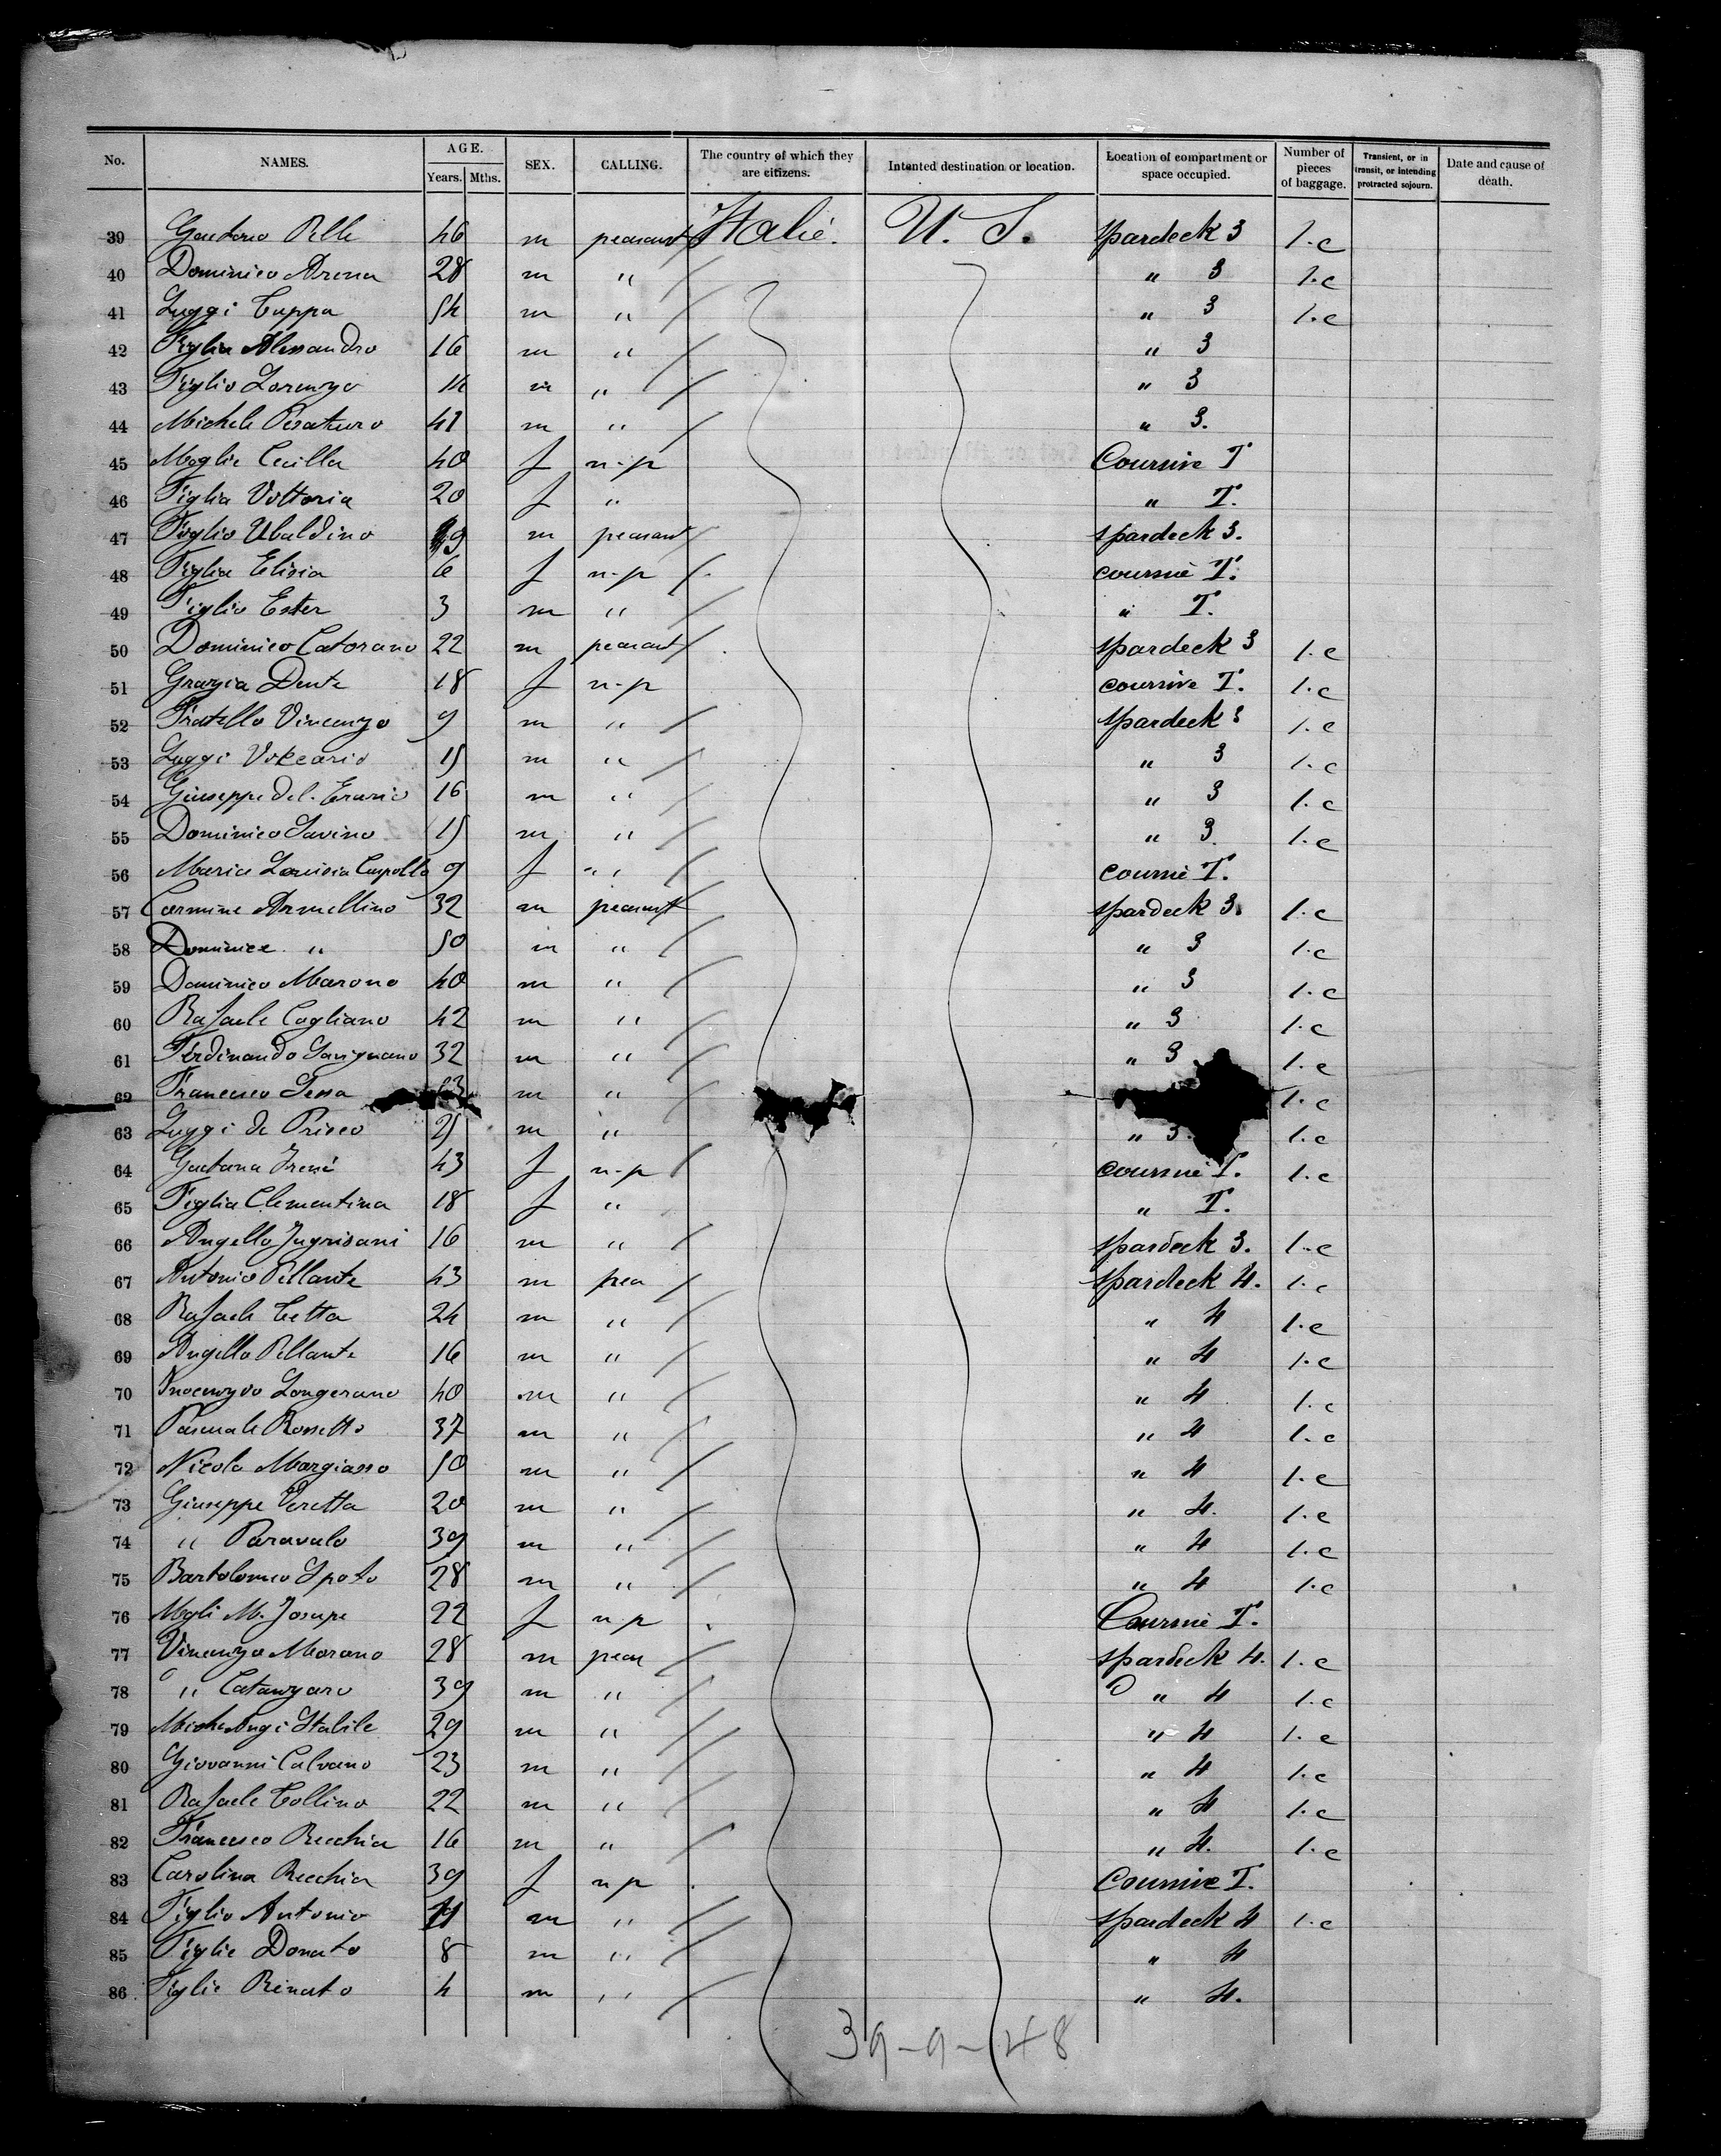 No. NAMES. AGE. Years. Mths. SEX. CALLING. The country of which they are citizens. Intented destination or location. Location of compartment or space occupied. Number of pieces of baggage. Transient, or in transit, or intending protracted sojourn. Date and cause of death.
39 Gaetano Pelle 46 m peasant Italie. U. S. spardeck 3 1.c
40 Dominico Arena 28 m " " 3 1.c
41 Luggi Cuppa 54 m " " 3 1.c
42 Figlio Alessandro 16 m " " 3
43 Figlio Lorenzo 14 m " " 3
44 Michele Pisaturo 41 m " " 3.
45 Moglie Cecilla 40 f n-p Coursive T
46 Figlia Vittoria 20 f " " T.
47 Figlio Ubaldino m peasant spardeck 3.
48 Figlia Elisia 6 f n-p coursive T.
49 Figlio Ester 3 m " " T.
50 Dominico Catorano 22 m peasant spardeck 3 1.c
51 Grazia Dente 18 f n-p coursive T. 1.c
52 Fratello Vincenzo 9 m " spardeck 3 1.c
53 Luggi 15 m " " 3 1.c
54 Giuseppe del. Erario 16 m " " 3 1.c
55 Dominico Savino 15 m " " 3. 1.c
56 Maria Louisia Cupollo 9 f " coursive T.
57 Carmine Armellino 32 m peasant spardeck 3. 1.c
58 Dominice " 50 m " " 3 1.c
59 Dominico Marono 40 m " " 3 1.c
60 Rafaele Cogliano 42 m " " 3 1.c
61 Ferdinando Savignano 32 m " " 3 1.c
62 Francesco Sessa m " 1.c
63 Luggi de Prisco 25 m " " 3. 1.c
64 Gaetana Irené 43 f n-p coursive T. 1.c
65 Figlia Clementina 18 f " " T.
66 Angello Ingrisani 16 m " spardeck 3. 1.c
67 Antonio Pellante 43 m pea spardeck 4. 1.c
68 Rafaele Cetta 24 m " " 4 1.c
69 Angello Pellante 16 m " " 4 1.c
70 Inocenzvo Longerano 40 m " " 4 1.c
71 Pascuale Rossetto 37 m " " 4 1.c
72 Nicola Margiasso 50 m " " 4 1.c
73 Giuseppe Veretta 20 m " " 4. 1.c
74 " Paravalo 39 m " " 4 1.c
75 Bartolomeo Spoto 28 m " " 4 1.c
76 Mogli M. Josepe 22 f n.p Coursive T.
77 Vincenzo Marano 28 m peas spardeck 4. 1.c
78 " Catanzaro 39 m " " 4 1.c
79 MicheAngi Stabile 29 m " " 4 1.c
80 Giovanni Calvano 23 m " " 4 1.c
81 Rafaele Collino 22 m " " 4 1.c
82 Francesco Recchia 16 m " " 4. 1.c
83 Carolina Recchia 39 f n p Coursive T.
84 Figlio Antonio 11 m " spardeck 4 1.c
85 Figlie Donato 8 m " " 4
86 Figlie Renato 4 m " " 4.
39-9-48